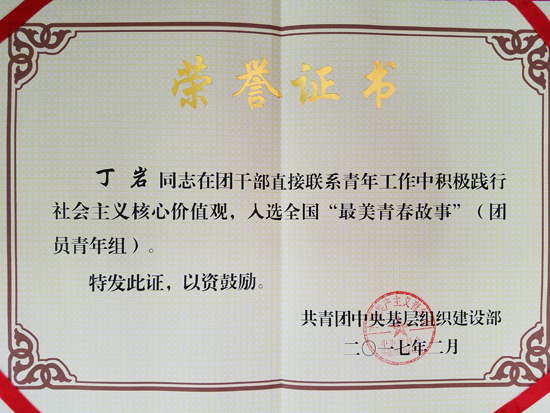 荣誉证书
丁岩同志在团干部直接联系青年工作中积极践行
社会主义核心价值观，入选全国“最美青春故事”（团
员青年组）。
特发此证，以资鼓励。
共青团中央基层组织建设部
二〇一七年二月